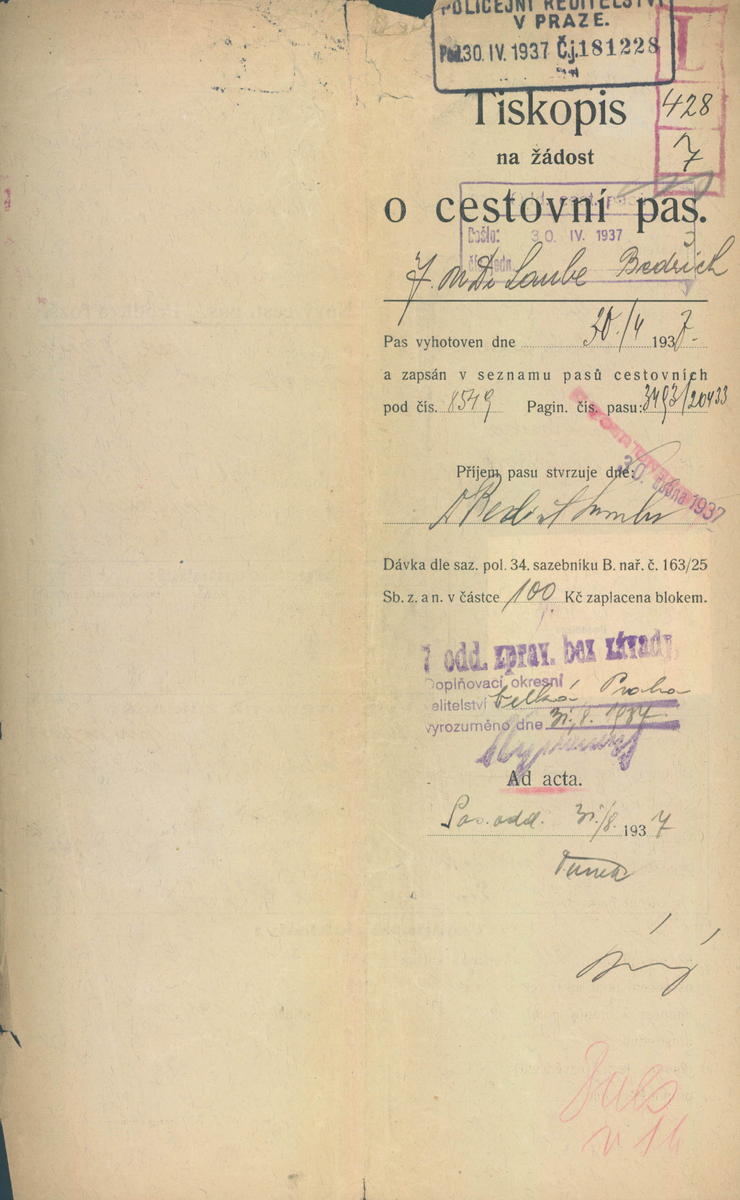 POLICEJNÍ ŘEDITELSTVÍ
V PRAZE.
30. IV. 1937 Č.j. 181228
L
428
7
Tiskopis
na žádost
o cestovní pas.
Došlo: 30. IV. 1937
J. Laube Bedřich
Pas vyhotoven dne 30/4 1937.
a zapsán v seznamu pasů cestovních
pod čís. 8549 Pagin. čís. pasu: 3493/20433
Příjem pasu stvrzuje dne:
30. dubna 1937
Dávka dle saz. pol. 34. sazebníku B. nař. č. 163/25
Sb. z. a n. v částce 100 Kč zaplacena blokem.
7 odd. zprav. bez závady.
Doplňovací okresní
velitelství Velká Praha
vyrozuměno dne 31./8. 1937.
Ad acta.
Pas. odd. 31/8. 1937